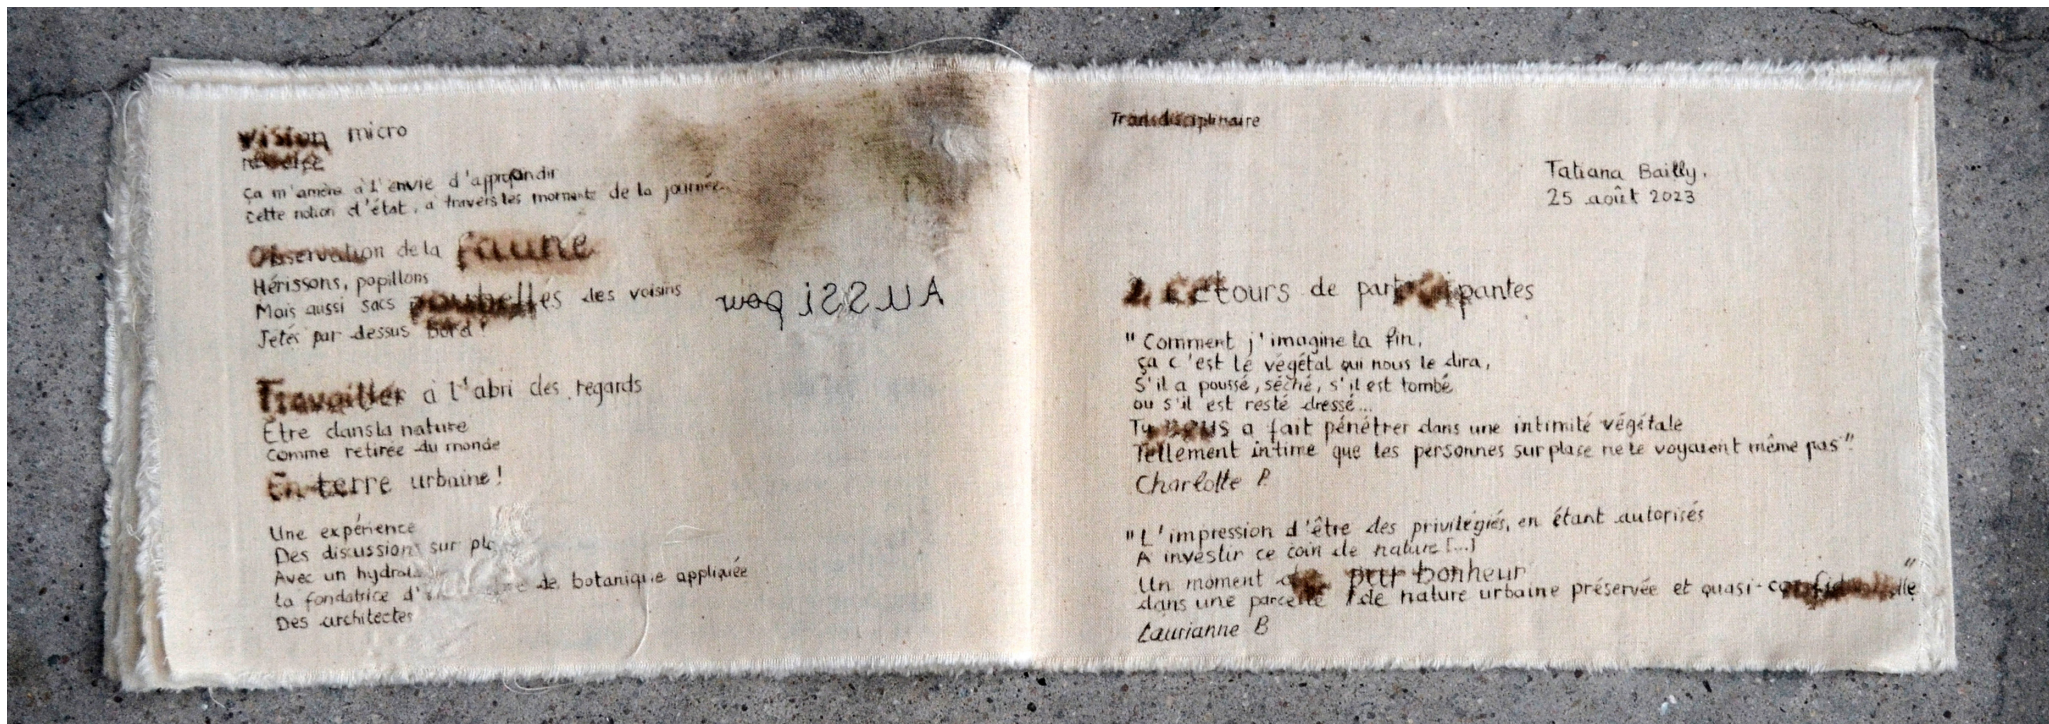 vision micro
ça m'amène à l'envie d'approfondir
cette notion d'état, à travers les moments de la journée.
Observation de la faune
Hérissons, papillons
Mais aussi sacs poubelles des voisins
Jetés par dessus bord!
Aussi pour
Travailler à l'abri des regards
Être dans la nature
Comme retirée du monde
En terre urbaine!
Une expérience
Des discussions sur
Avec un
La fondatrice de botanique appliquée
Des architectes
Transdisciplinaire
Tatiana Bailly.
25 août 2023
tours de participantes
" Comment j'imagine la fin,
ça c'est le végétal qui nous le dira,
S'il a poussé, séché, s'il est tombé
ou s'il est resté dressé...
Tu nous a fait pénétrer dans une intimité végétale
Tellement intime que les personnes sur place ne le voyaient même pas"
Charlotte P.
"L'impression d'être des privilégiés, en étant autorisés
A investir ce coin de nature [...]
Un moment de pur bonheur
dans une parcelle de nature urbaine préservée et quasi-confidentielle"
Laurianne B